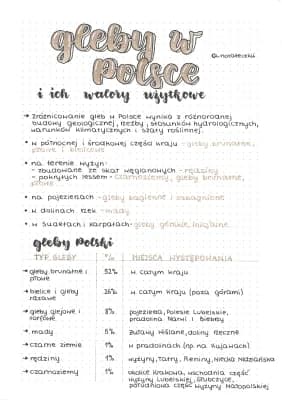 gleby w
Polsce
@_notateczki
i ich walory użytkowe
→ Zróżnicowanie gleb w Polsce wynika z różnorodnej
budowy geologicznej, rzeźby, stosunków hydrologicznych,
warunków klimatycznych i szaty roślinnej.
• w północnej i środkowej części kraju - gleby brunatne,
płowe i bielicowe
• na terenie wyżyn:
- zbudowane ze skał węglanowych - rędziny
- pokrytych lessem - czarnoziemy, gleby brunatne,
płowe
• na pojezierzach - gleby bagienne i zabagnione
• w dolinach rzek - mady
• w Sudetach i Karpatach - gleby górskie, inicjalne
gleby Polski
TYP GLEBY % MIEJSCA WYSTĘPOWANIA
→ gleby brunatne i 52% w całym kraju
płowe
→ bielice i gleby 26% w całym kraju (poza górami)
rdzawe
→ gleby glejowe i 8% pojezierza, Polesie Lubelskie,
torfowe pradolina Narwi i Biebrzy
→ mady 5% Żuławy Wiślane, doliny rzeczne
→ czarne ziemie 1% w pradolinach (np. na Kujawach)
→ rędziny 1% wyżyny, Tatry, Pieniny, Niecka Nidziańska
→ czarnoziemy 1% okolice Krakowa, wschodnia część
Wyżyny Lubelskiej, Głubczyce,
południowa część Wyżyny Małopolskiej